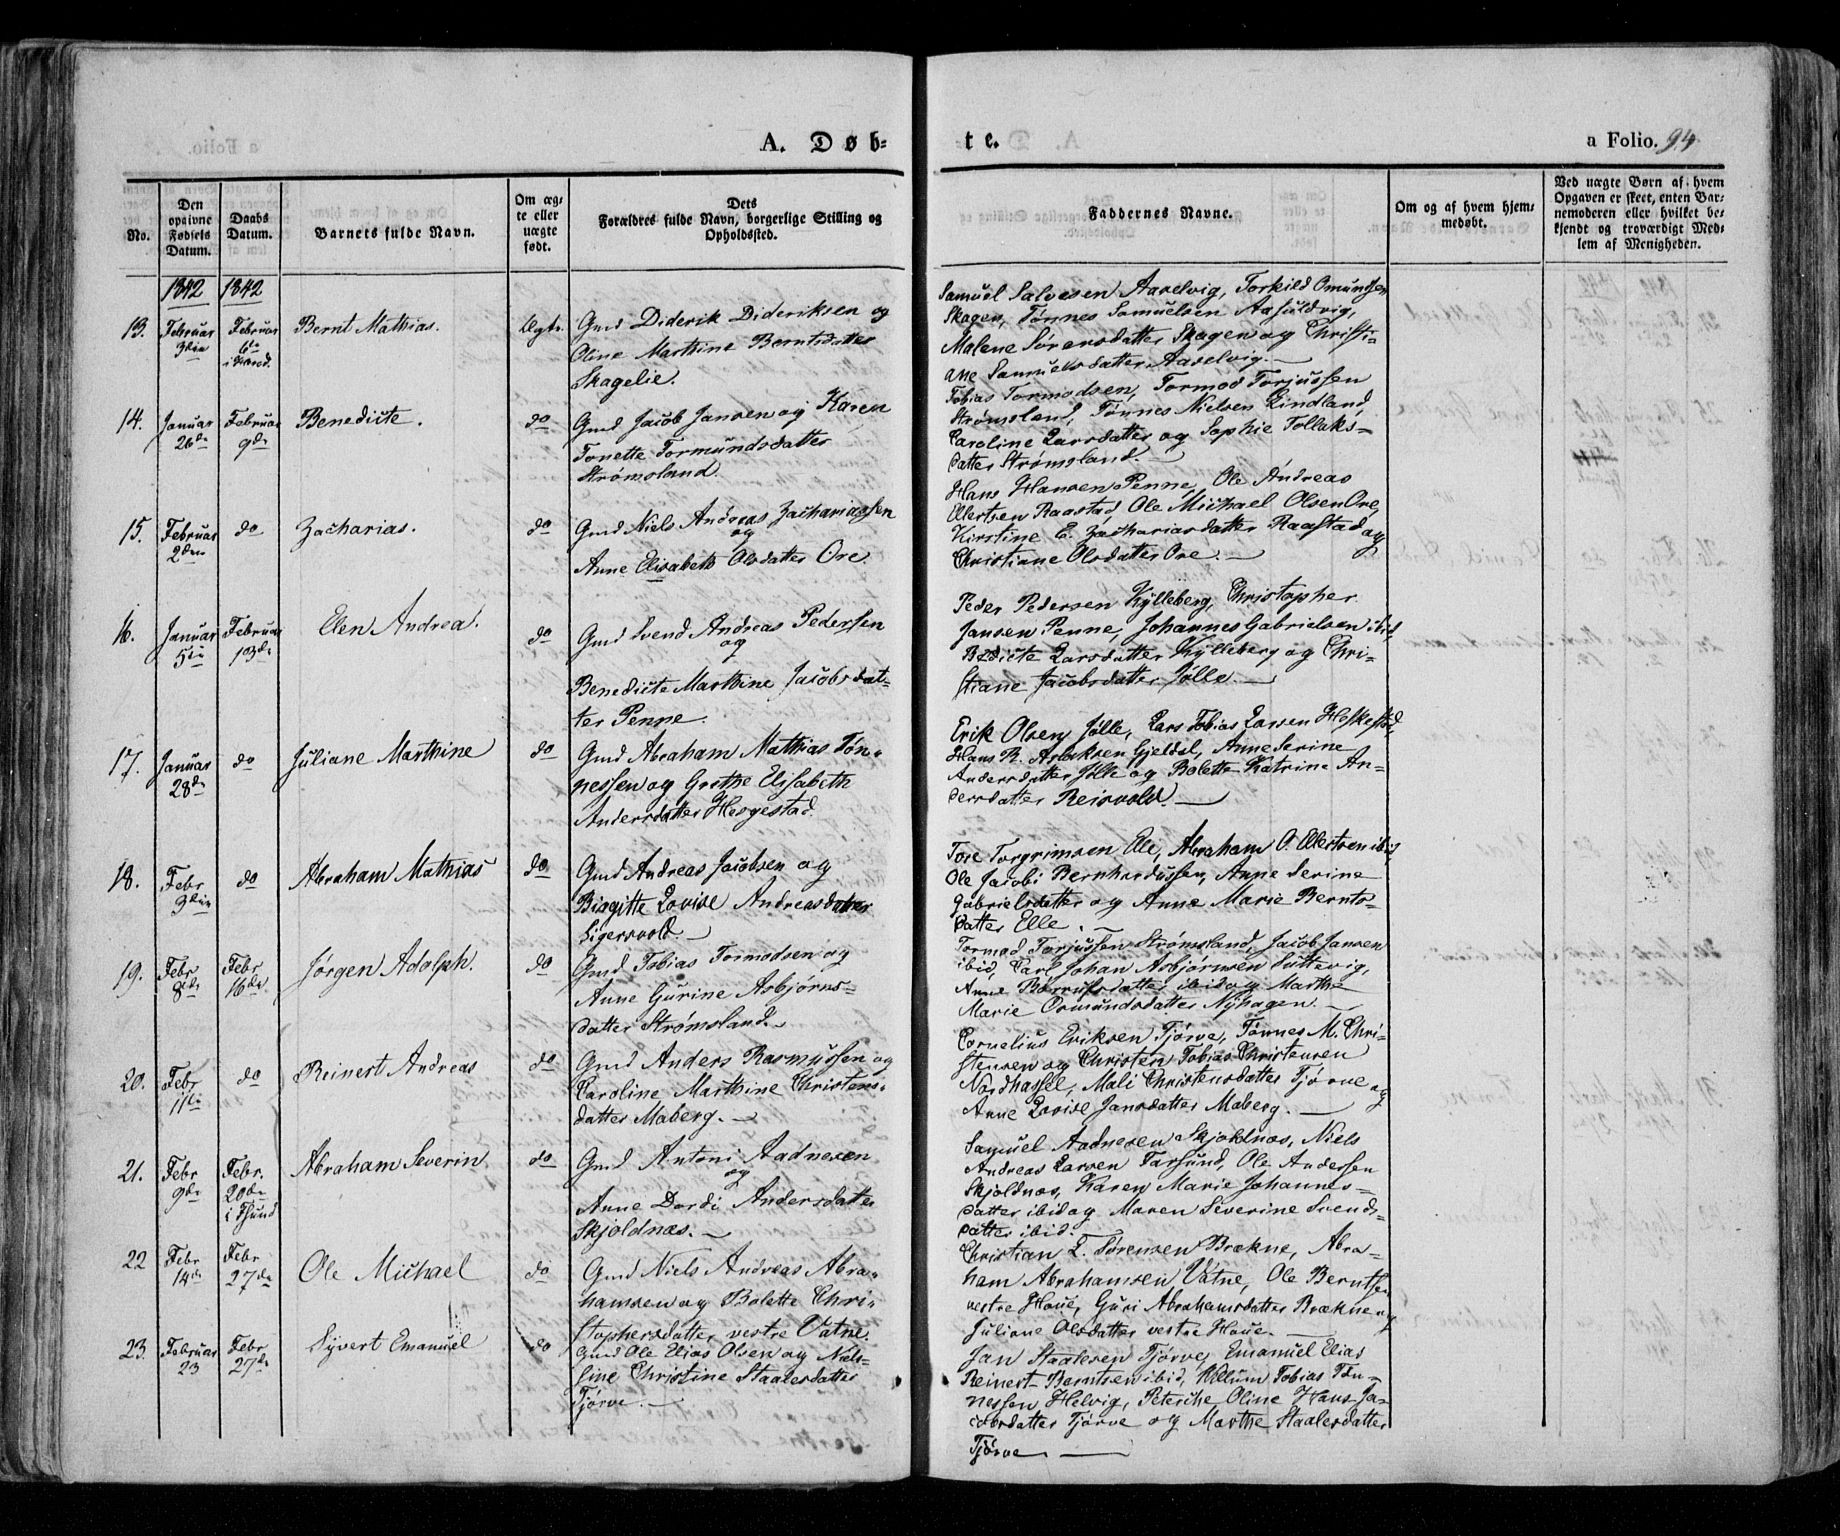 A. Døb-
te.
a Folio. 94.
No.
Den opgivne Fødsels Datum.
Daabs Datum.
Barnets fulde Navn.
Om ægte eller uægte født.
Dets Forældres fulde Navn, borgerlige Stilling og Opholdssted.
Faddernes Navne.
Om og af hvem hjemmedøbt.
Ved uægte Børn af hvem Opgaven er skeet, enten Barnemoderen eller hvilket bekjendt og troværdigt Medlem af Menigheden.
1842 1842
13. Februar 3die
Februar 6te
Bernt Mathias.
Ægte.
Gmd Diderik Dideriksen og
Oline Marthine Berntsdatter
Skagelie.
Samuel Salvesen Aavelvig, Torkild Omundsen
Skagen, Tønnes Samuelsen
Malene Sørensdatter Skagen og Christi-
ane Samuelsdatter Aavelvig.
14. Januar 26de
Februar 9de
Benedicte.
do
Gmd Jacob Jansen og Karen
Tonette Tormundsdatter
Strømsland.
Tobias Tormodsen, Tormod Torjussen
Strømsland, Tønnes Nielsen Lindland,
Caroline Larsdatter og Sophie Tollaks-
datter Strømsland.
15. Februar 2den
do
Zacharias.
do
Gmd Niels Andreas Zachariassen
og
Anne Elisabeth Olsdatter Ore.
Hans Hansen Penne, Ole Andreas
Ellertsen Raastad, Ole Michael Olsen Ore,
Kirstine E. Zachariasdatter Raastad og
Christiane Olsdatter Ore.
16. Januar 5te
Februar 13de
Elen Andrea.
do
Gmd Svend Andreas Pedersen
og
Benedicte Marthine Jacobsdat-
ter Penne.
Peder Pedersen Kylleberg, Christopher
Jansen Penne, Johannes Gabrielsen ibid,
Larsdatter Kylleberg og Chri-
stiane Jacobsdatter Jølle.
17. Januar 28de
do
Juliane Marthine
do
Gmd Abraham Mathias Tøn-
nessen og Grethe Elisabeth
Andersdatter Hesgestad.
Erik Olsen Jølle, Lars Tobias Larsen Heskestad,
Hans R. Aslaksen Gjeldsl, Anne Serine
Andersdatter Jølle og Bolette Katrine An-
dersdatter Reisvold.
18. Febr 3die
do
Abraham Mathias
do
Gmd Andreas Jacobsen og
Birgitte Lovise Andreasdatter
Sigersvold.
Tore Torgrimsen Elle, Abraham O. Ellertsen ibid,
Ole Jacobi Bernhardussen, Anne Serine
Gabrielsdatter og Anne Marie Bernts-
datter Elle.
19. Febr 8de
Febr 16de
Jørgen Adolph.
do
Gmd Tobias Tormodsen og
Anne Gurine Asbjørns-
datter Strømsland.
Tormod Torjussen Strømsland, Jacob Jansen
ibid, Carl Johan Asbjørnsen
Anne ibid og Marthe
Marie Osmundsdatter Nyhagen.
20. Febr 11te
do
Reinert Andreas
do
Gmd Anders Rasmussen og
Caroline Marthine Christens-
datter Maberg.
Cornelius Eriksen Tjørve, Tønnes M. Chri-
stensen og Christen Tobias Christensen
Nordhassel, Mali Christensdatter Tjørve og
Anne Lovise Jansdatter Maberg.
21. Febr 9de
Febr. 20de i Fsund
Abraham Severin
do
Gmd Antoni Aadnesen
og
Anne Dordi Andersdatter
Skjoldnæs.
Samuel Aadnesen Skjoldnæs, Niels
Andreas Larsen Farsund, Ole Andersen
Skjoldnæs, Karen Marie Johannes-
datter ibid og Maren Severine Svends-
datter ibid.
22 Febr 14de
Febr 27de
Ole Michael
do
Gmd Niels Andreas Abra-
hamsen og Bolette Chri-
stophersdatter vestre Vatne.
Christian T. Sørensen Brækne, Abra-
ham Abrahamsen Vatne, Ole Berntsen
vestre Houe, Guri Abrahamsdatter Brækne og
Juliane Olsdatter vestre Houe.
23. Februar 23
Febr 27de
Syvert Emanuel
do
Gmd Ole Elias Olsen og Niel-
sine Christine Staalesdatter
Tjørve.
Jan Staalesen Tjørve, Emanuel Elias
Reinert Berntsen ibid, Villum Tobias Tøn-
nessen Helvig, Petersche Oline Hans Ja-
cobsdatter Tjørve og Marthe Staalesdatter
Tjørve